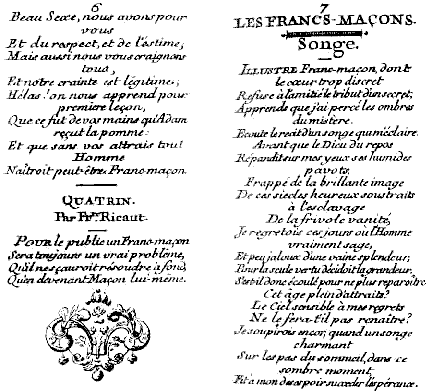 6
Beau Sexe, nous avons pour
vous
Et du respect, et de l'estime;
Mais aussi nous vous craignons
tous,
Et notre crainte est légitime;
Hélas! on nous apprend pour
premiere leçon,
Que ce fut de vos mains qu'Adam
reçut la pomme:
Et que sans vos attraits tout
Homme
Naîtroit peut-être Franc-maçon.
QUATRIN.
Par Fre. Ricaut.
POUR le public un Franc-maçon
Sera toujours un vrai problème,
Qu'il ne sçauroit résoudre à fond,
Qu'en devenant Maçon lui-même.
7
LES FRANCS-MAÇONS.
Songe.
ILLUSTRE Franc-maçon, dont
le cœur trop discret
Refuse à l'amitié le tribut d'un secret,
Apprends que j'ai percé les ombres
du mistère.
Ecoute le recit d'un songe qui m'éclaire.
Avant que le Dieu du repos
Répandît sur mes yeux ses humides
pavots,
Frappé de la brillante image
De ces siècles heureux soustraits
à l'esclavage
De la frivole vanité,
Je regretois ces jours où l'Homme
vraiment sage,
Et peu jaloux d'une vaine splendeur,
Pour la seule vertu décidoit la grandeur,
S'est-il donc écoulé pour ne plus reparoître
Cet âge plein d'attraits?
Le Ciel sensible à mes regrets
Ne le fera-t'il pas renaître?
Je soupirois encor, quand un songe
charmant
Sur les pas du sommeil, dans ce
sombre moment,
Et à mon desespoir succéder l'espérance.